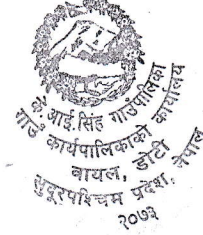 के.आई.सिंह गाउँपालिका
गाउँ कार्यपालिकाको कार्यालय
बायल, डोटी
सुदूरपश्चिम प्रदेश, नेपाल
२०७३